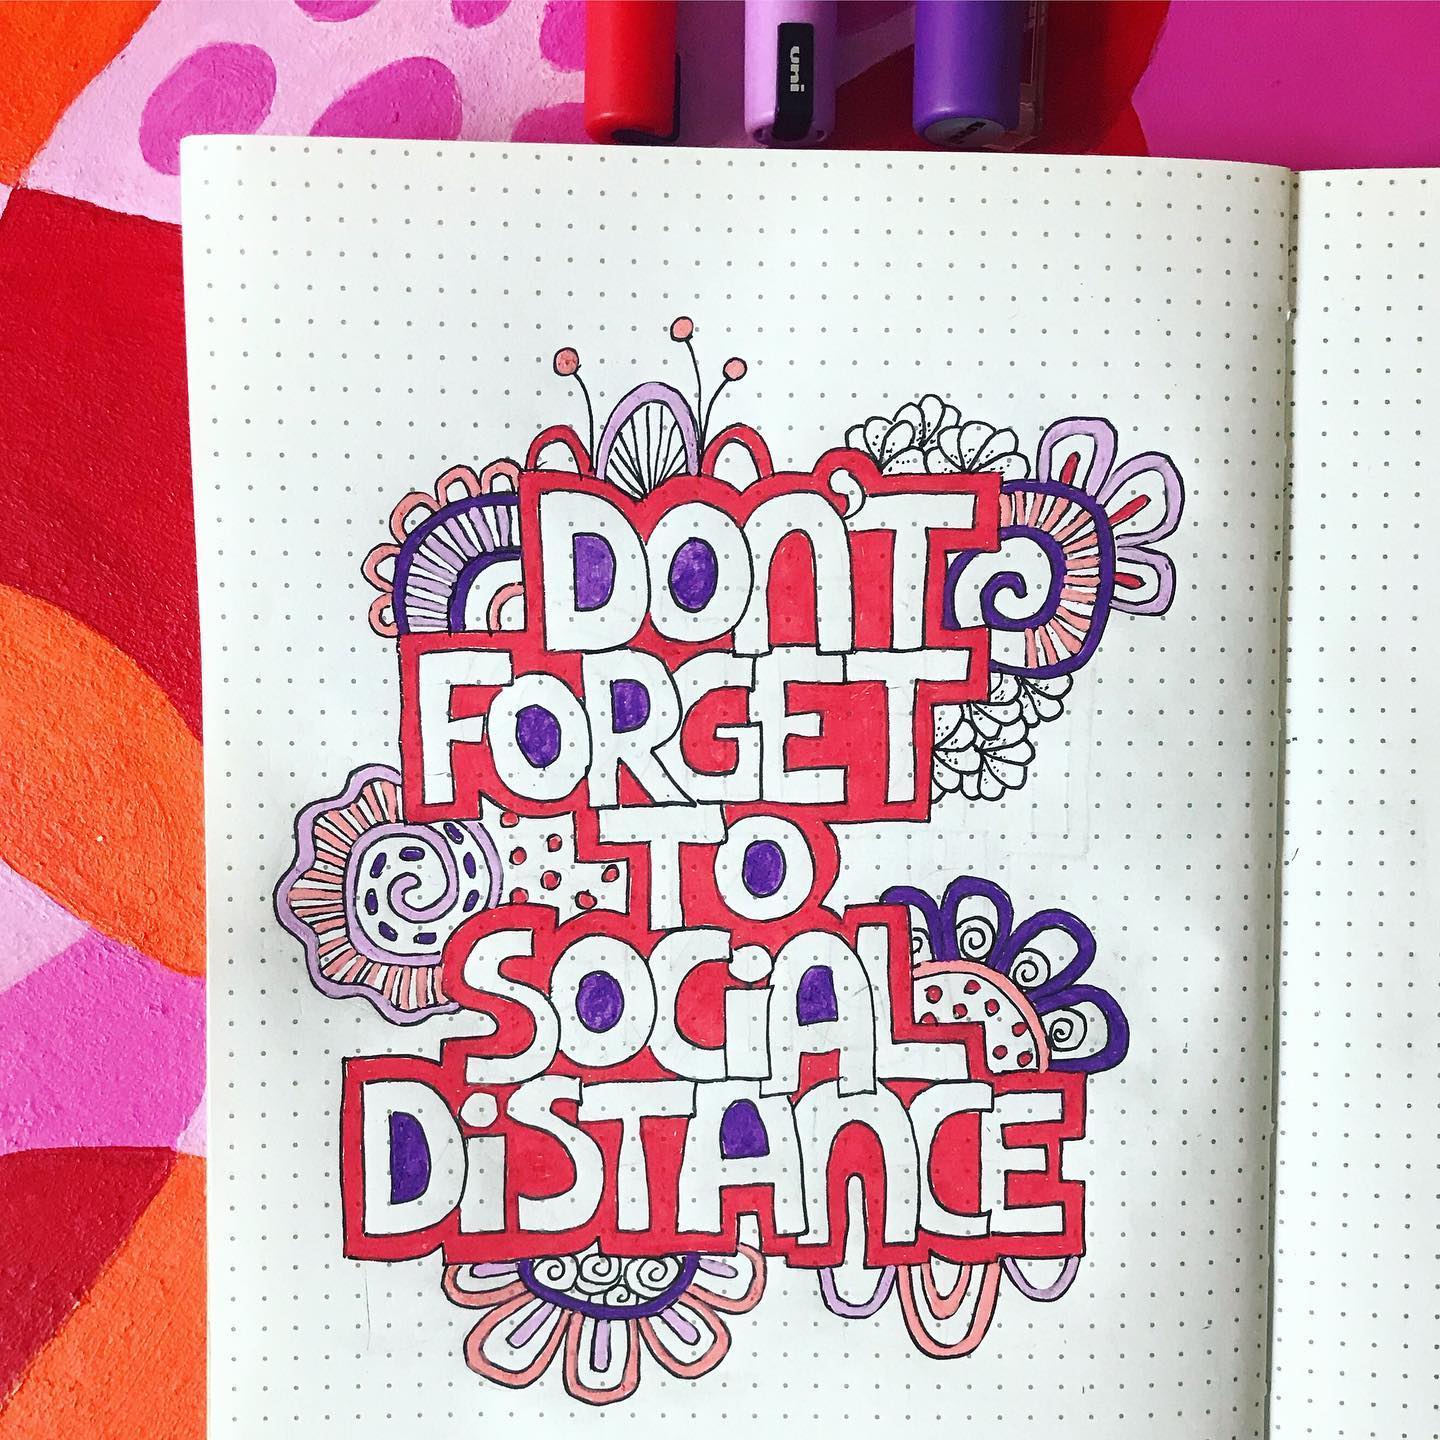 uni
DON'T
FORGET
TO
SOCiAL
DiSTANCE